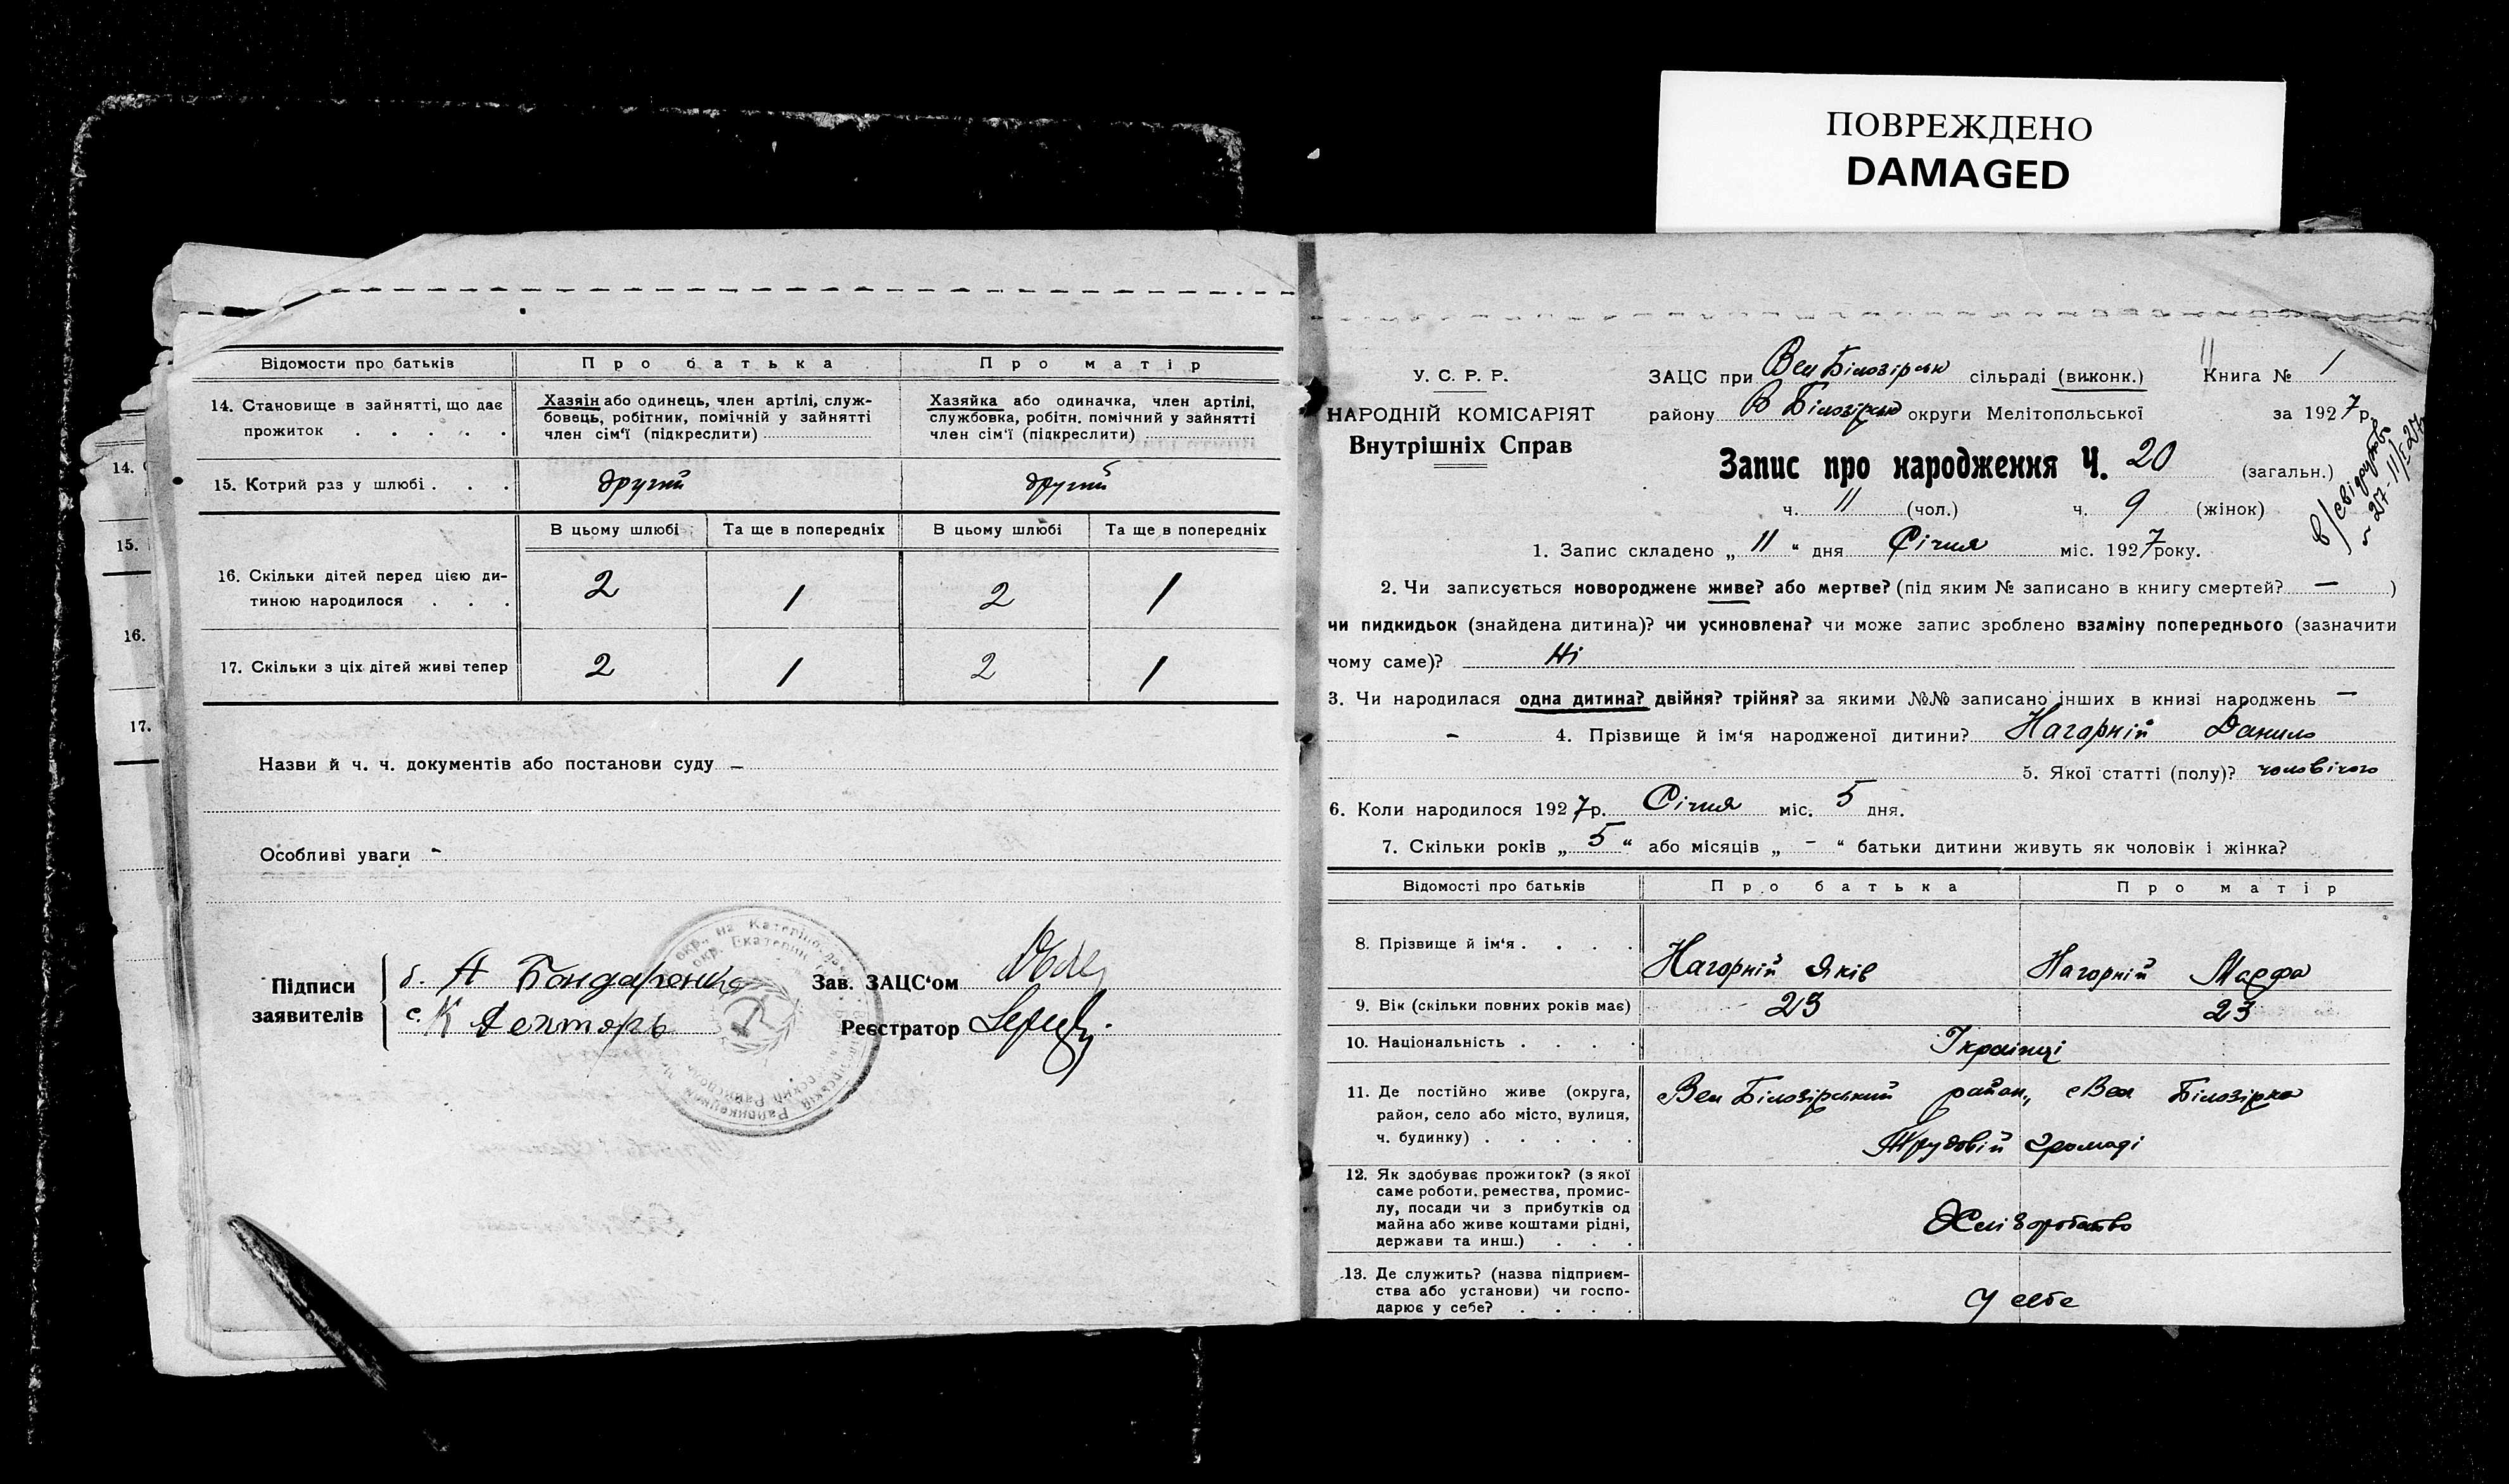 ПОВРЕЖДЕНО
DAMAGED
Відомости про батьків Про батька Про матір
14. Становище в зайнятті, що дає прожиток . . . . .
Хазяін або одинець, член артілі, служ-
бовець, робітник, помічній у зайнятті
член сім'ї (підкреслити)
Хазяйка або одиначка, член артілі,
службовка, робітн. помічний у зайнятті
член сім'ї (підкреслити)
15. Котрий раз у шлюбі . . . другий другий
В цьому шлюбі Та ще в попередніх В цьому шлюбі Та ще в попередніх
16. Скільки дітей перед цією ди-
тиною народилося . . . 2 1 2 1
17. Скільки з ціх дітей живі тепер 2 1 2 1
Назви й ч. ч. документів або постанови суду –
Особливі уваги -
Підписи
заявителів
б. А Бондаренко
с. К Дехтярь
Зав. ЗАЦС'ом
Реєстратор
14.
15.
16.
17.
У. С. Р. Р.
НАРОДНІЙ КОМІСАРІЯТ
Внутрішніх Справ
ЗАЦС при Вел Білозірськ сільраді (виконк.) Книга № 1
району В Білозірськ округи Мелітопольської за 1927 р.
Запис про народження Ч. 20 (загальн.)
ч. 11 (чол.) ч. 9 (жінок)
1. Запис складено „ 11 “ дня Січня міс. 1927 року.
2. Чи записується новороджене живе? або мертве? (під яким № записано в книгу смертей? — )
чи пидкидьок (знайдена дитина)? чи усиновлена? чи може запис зроблено взаміну попереднього (зазначити
чому саме)? Ні
3. Чи народилася одна дитина? двійня? трійня? за якими №№ записано інших в книзі народжень –
- 4. Прізвище й ім'я народженої дитини? Нагорній Данило
5. Якої статті (полу)? чоловічого
6. Коли народилося 1927 р. Січня міс. 5 дня.
7. Скільки років „ 5 “ або місяців „ - “ батьки дитини живуть як чоловік і жінка?
Відомості про батьків Про батька Про матір
8. Прізвище й ім'я . . . . Нагорній Яків Нагорній Марфа
9. Вік (скільки повних років має) 23 23
10. Національність . . . . Українці
11. Де постійно живе (округа,
район, село або місто, вулиця,
ч. будинку) . . . . .
Вел Білозірський район, с Вел Білозірка
Трудовій громаді
12. Як здобуває прожиток? (з якої
саме роботи, ремества, промис-
лу, посади чи з прибутків од
майна або живе коштами рідні,
держави та инш.) . . .
Хліборобство
13. Де служить? (назва підприєм-
ства або установи) чи госпо-
дарює у себе? . . . .
У себе